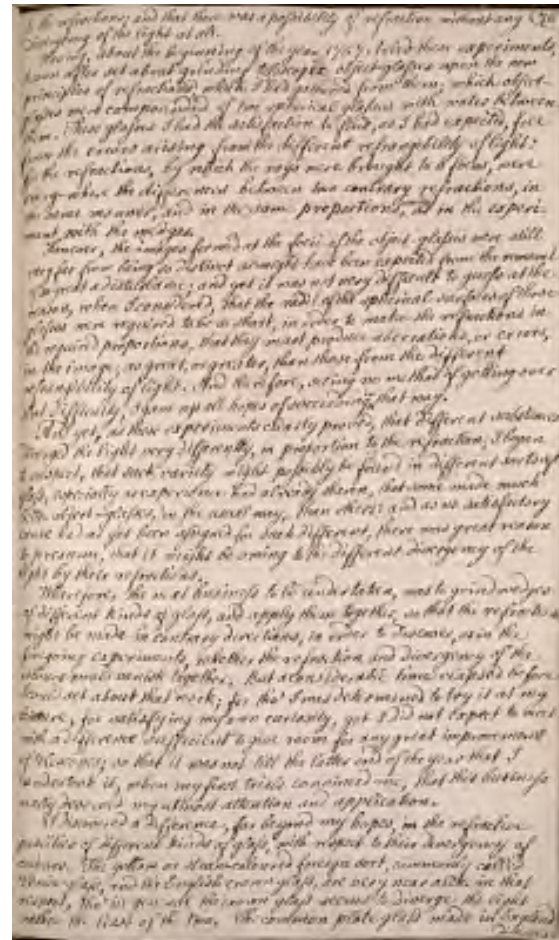 the refractions; and that there was a possibility of refraction without any
diverging of the light at all.
Having, about the beginning of the year 1757, tried these experiments,
soon after set about grinding telescopic object-glasses upon the new
principles of refractions, which I had gathered from them; which object-
glasses were compounded of two spherical glasses with water between
them. These glasses I had the satisfaction to find, as I had expected, free
from the errors arising from the different refrangibility of light:
for the refractions, by which the rays were brought to a focus, were
every-where the differences between two contrary refractions, in
the same manner, and in the same proportions, as in the experi-
ment with the wedges.
However, the images formed at the foci of the object-glasses were still
very far from being so distinct as might have been expected from the removal
of so great a disturbance; and yet it was not very difficult to guess at the
reason, when I considered, that the radii of the spherical surfaces of those
glasses were required to be so short, in order to make the refractions in
the required proportions, that they must produce aberrations, or errors,
in the image, as great, or greater, than those from the different
refrangibility of light. And therefore, seeing no method of getting over
that difficulty, I gave up all hopes of succeeding that way.
And yet, as these experiments clearly proved, that different substances
diverged the light very differently, in proportion to the refraction; I began
to suspect, that such variety might possibly be found in different sorts of
glass, especially as experience had already shewn, that some made much
better object-glasses, in the usual way, than others: and as no satisfactory
cause had as yet been assigned for such difference, there was great reason
to presume, that it might be owing to the different divergency of the
light by their refractions.
Wherefore, the next business to be undertaken, was to grind wedges
of different kinds of glass, and apply them together, so that the refractions
might be made in contrary directions, in order to discover, as in the
foregoing experiments, whether the refraction and divergency of the
colours would vanish together. But a considerable time elapsed before
I could set about that work; for tho' I was determined to try it at my
leisure, for satisfying my own curiosity, yet I did not expect to meet
with a difference sufficient to give room for any great improvement
of telescopes; so that it was not till the latter end of the year that I
undertook it, when my first trials convinced me, that this business
really deserved my utmost attention and application.
I discovered a difference, far beyond my hopes, in the refractive
qualities of different kinds of glass, with respect to their divergency of
colours. The yellow or straw-coloured foreign sort, commonly called
Venice glass, and the English crown glass, are very near alike in that
respect, tho' in general the crown glass seems to diverge the light
rather the least of the two. The common plate glass made in England